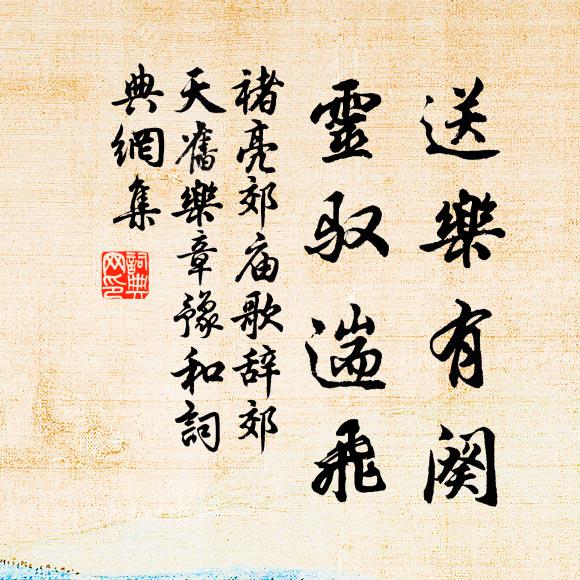 送樂有闋
靈馭遄飛
褚亮郊庙歌辞郊
天舊樂章豫和詞
典網集
詞典网印